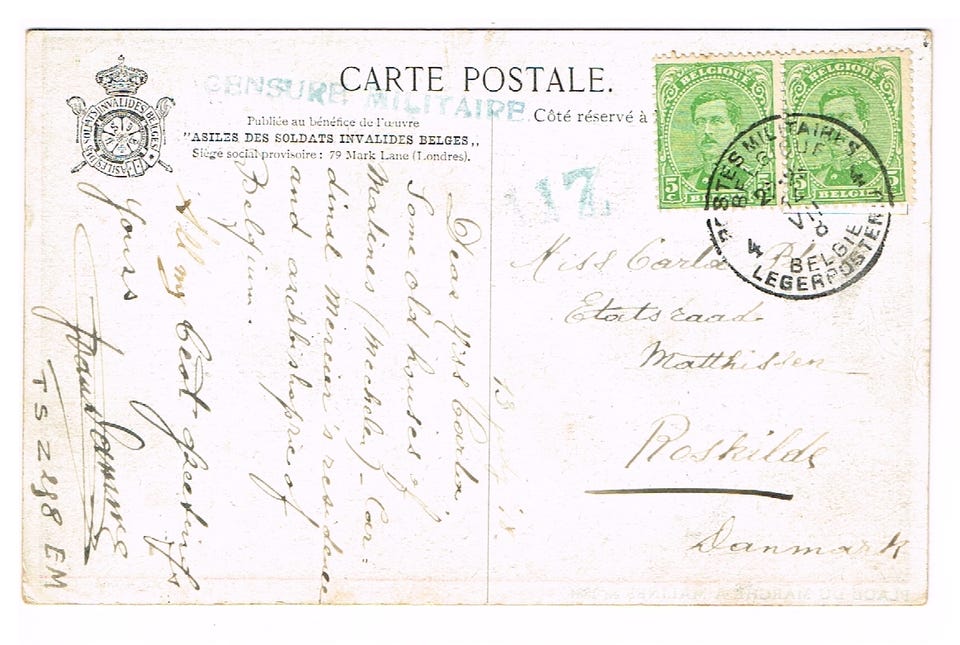 CARTE POSTALE.
CENSURE MILITAIRE
Publiée au bénéfice de l'œuvre
"ASILES DES SOLDATS INVALIDES BELGES,,
Siège social provisoire: 79 Mark Lane (Londres).
Côté réservé à
ASILES DES SOLDATS INVALIDES BELGES
BELGIQUE
5
BELGIQUE
5
POSTES MILITAIRES
BELGIQUE
4
4
BELGIE
LEGERPOSTERIJ
17
Dear Miss Carla
Some old houses of
Malines (Mechelen) - Car=
dinal Mercier's residence
and archbishopric of
Belgium.
All my best greetings
Yours
TS 2 288 EM
13
18
Miss Carla
Etatsraad
Matthissen
Roskilde
Danmark
PLACE DU MARCHÉ A MALINES